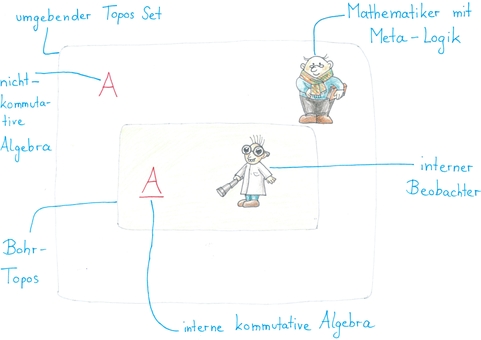 umgebender Topos Set
Mathematiker mit
Meta-Logik
nicht-
kommuta-
tive
Algebra
A
A
interner
Beobachter
Bohr-
Topos
interne kommutative Algebra